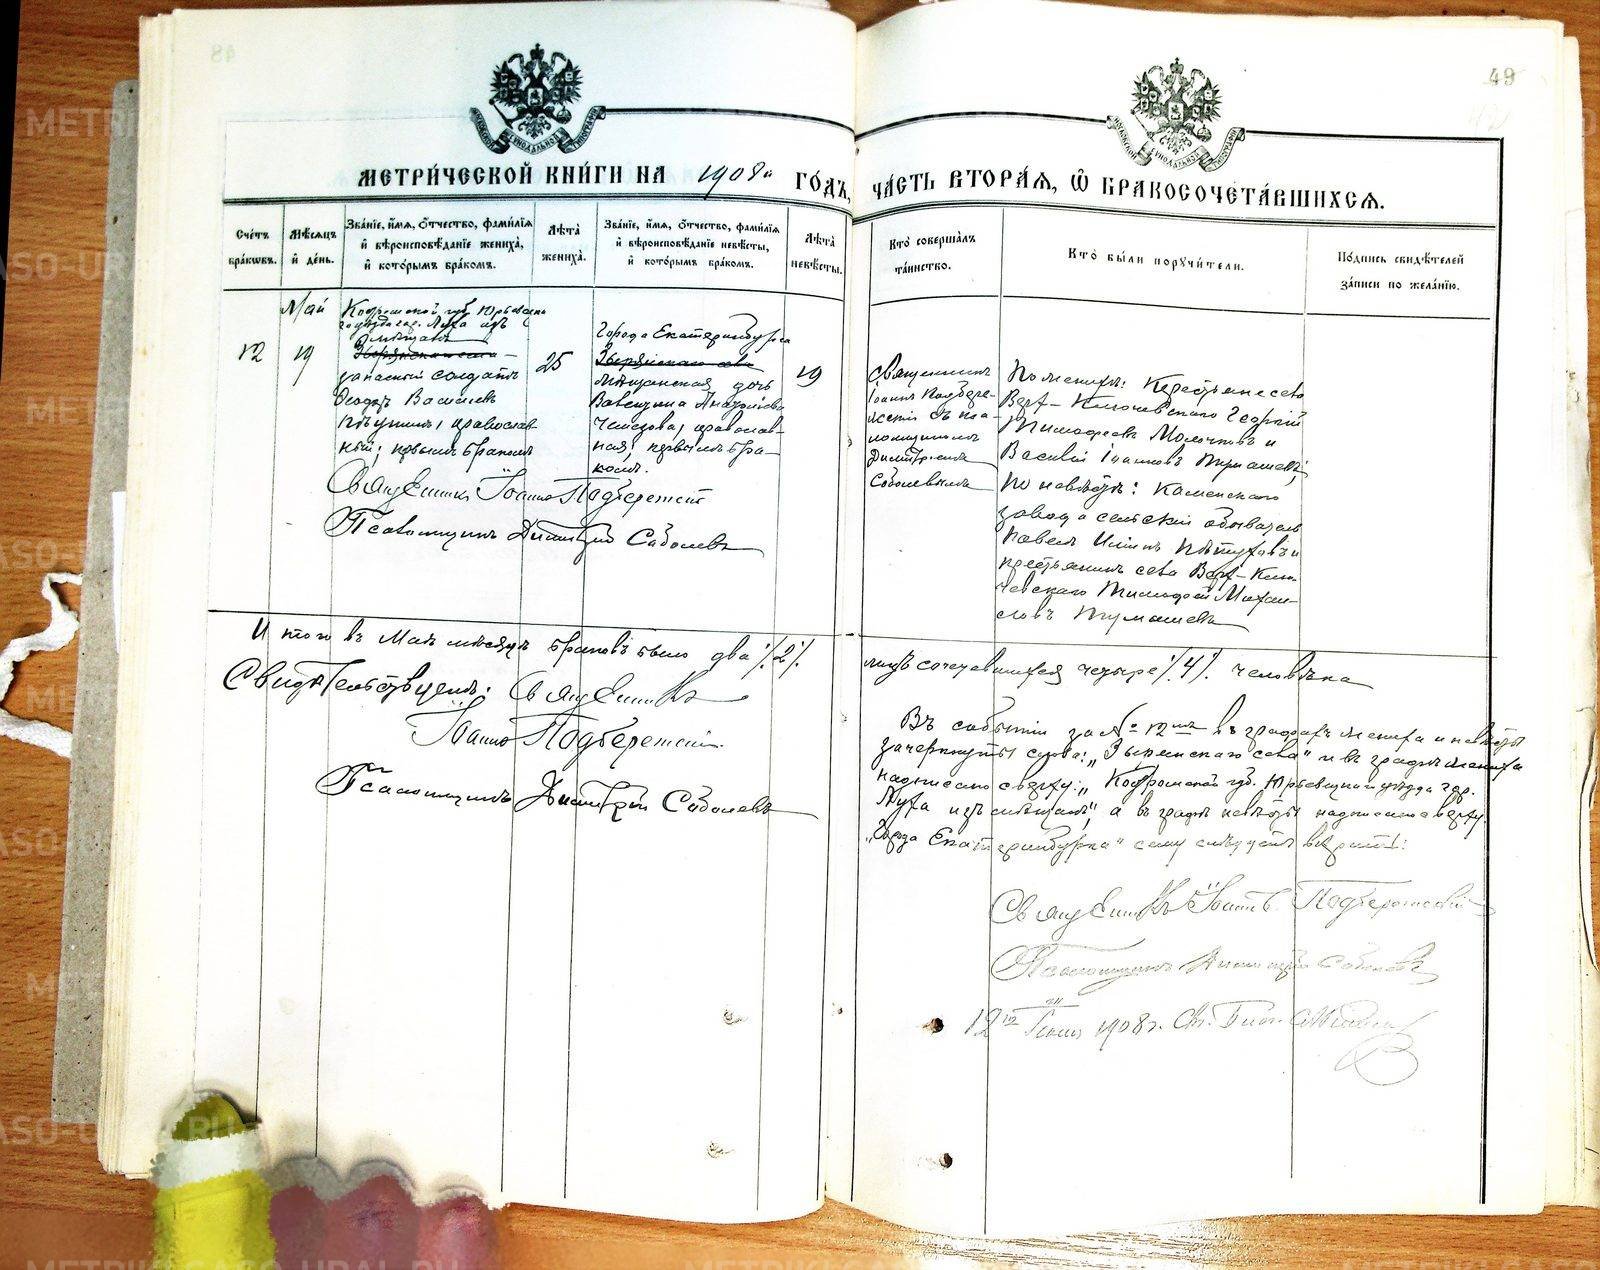 49
МЕТРИ́ЧЕСКОЙ КНИ́ГИ НА 1908й ГО́ДЪ,
ЧА́СТЬ ВТОРА́Я, Ѿ БРАКОСОЧЕТА́ВШИХСЯ.
Сче́тъ бра́кѡвъ.
Мѣ́сяцъ и҆ де́нь.
Зва́нїе, и҆́мя, ѻ҆́тчество, фами́лїя и҆ вѣроисповѣ́данїе жениха̀, и҆ кото́рымъ бра́комъ.
Лѣ́та жениха̀.
Зва́нїе, и҆́мя, ѻ҆́тчество, фами́лїя и҆ вѣроисповѣ́данїе невѣ́сты, и҆ кото́рымъ бра́комъ.
Лѣ́та невѣ́сты.
Кто̀ соверша́лъ та́инство.
Кто̀ бы́ли порꙋчи́тели.
По́дпись свидѣ́телей за́писи по жела́нїю.
12
Май
19
Костромской губ. Юрьевецка
го уѣзда гор. Луха изъ
мѣщанъ
Зырянскаго села
запасный солдатъ
Ѳеодоръ Васильевъ
православ
ный; первымъ бракомъ
25
Города Екатеринбурга
Зырянскаго села
мѣщанская дочь
Валентина Андреева
православ-
ная; первымъ бра-
комъ.
19
Священникъ
Іоаннъ Подбере-
жскій съ пса-
ломщикомъ
Димитріемъ
Соболевымъ
По женихѣ: Крестьяне села
Верх-Ключевскаго Георгій
Тимофеевъ Молочковъ и
Василій Іоанновъ Тумашевъ;
По невѣстѣ: Каменскаго
завода сельскій обыватель
Павелъ Ильинъ Пѣтуховъ и
крестьянинъ села Верх-Клю-
чевскаго Тимофей Михаи-
ловъ Тумашевъ
Священникъ Іоаннъ Подбережскій
Псаломщикъ Димитрій Соболевъ
Итого въ Маѣ мѣсяцѣ браковъ было два /.2/.
лицъ сочетавшихся четыре /.4/. человѣка
Свидѣтельствуемъ: Священникъ
Іоаннъ Подбережскій.
Псаломщикъ Димитрій Соболевъ
Въ событіи за № 12мъ въ графахъ жениха и невѣсты
зачеркнуты слова: „Зырянскаго села" и въ графѣ жениха
надписано сверху: „Костромской губ. Юрьевецкаго уѣзда гор.
Луха изъ мѣщанъ", а въ графѣ невѣсты надписано сверху:
„Города Екатеринбурга" сему слѣдуетъ вѣрить!
Священникъ Іоаннъ Подбережскій
Псаломщикъ Димитрій Соболевъ
12го Іюня 1908г.